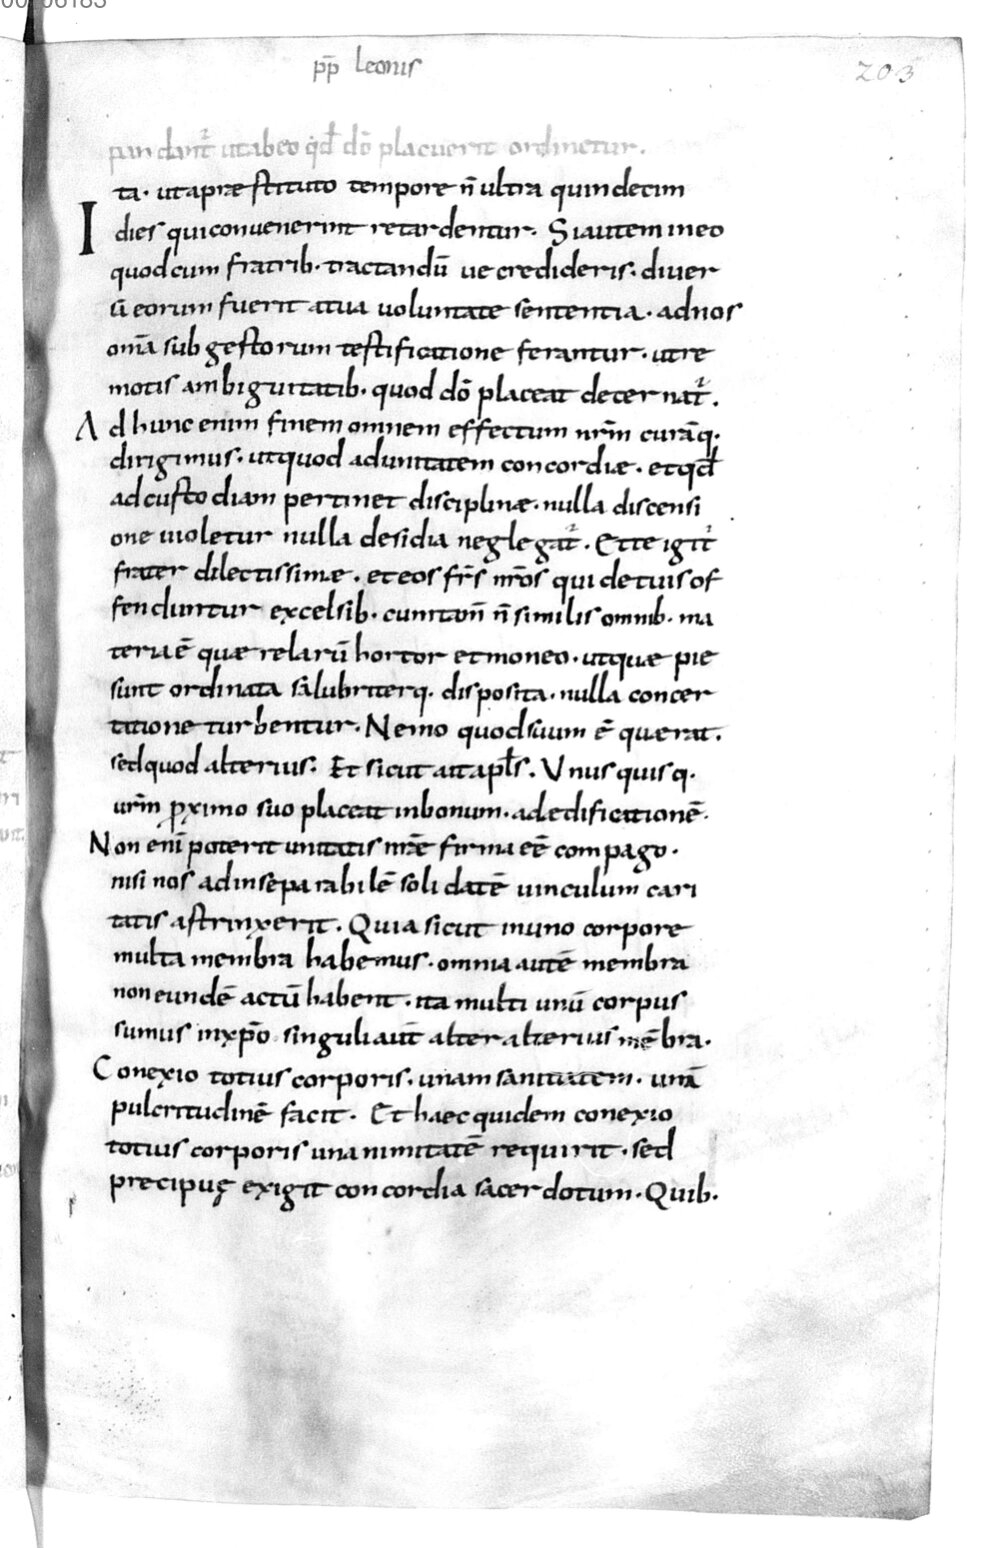 pp̄ leonis
203
pandant᷑ ut ab eo qd̄ dō placuerit ordinetur.
Ita· ut a præstituto tempore n̄ ultra quindecim
dies qui convenerint retardentur. Si autem in eo
quod cum fratrib· tractandū ve credideris· diver
sū eorum fuerit a tua voluntate sententia· ad nos
om̄a sub gestorum testificatione ferantur· ut re
motis ambiguitatib· quod dō placeat decernat᷑.
Ad hunc enim finem omnem effectum nr̄m curāq·
dirigimus· ut quod ad unitatem concordiæ· et qd̄
ad custodiam pertinet disciplinæ· nulla discensi
one violetur nulla desidia neglegat᷑. Et te igit᷑
frater dilectissimæ· et eos fr̄s nr̄os qui de tuis of
fenduntur excelsib· cuniton̄ n̄ similis omnib· ma
teria ē quærelarū hortor et moneo· ut quæ pie
sunt ordinata salubriterq· disposita· nulla concer
tatione turbentur. Nemo quod suum ē quærat.
sed quod alterius. Et sicut ait apl̄s. Unus quisq·
ur̄m p̱ximo suo placeat in bonum· ad edificationē.
Non enī poterit unitatis nr̄æ firma eē compago·
nisi nos ad inseparabilē solidatē vinculum cari
tatis astrinxerit. Quia sicut in uno corpore
multa membra habemus· omnia autē membra
non eundē actū habent· ita multi unū corpus
sumus in xp̄o singuli aut̄ alter alterius mēbra·
Conexio totius corporis· unam sanitatem· unā
pulcritudinē facit. Et haec quidem conexio
totius corporis unanimitatē requirit· sed
precipuę exigit concordia sacerdotum· Quib·